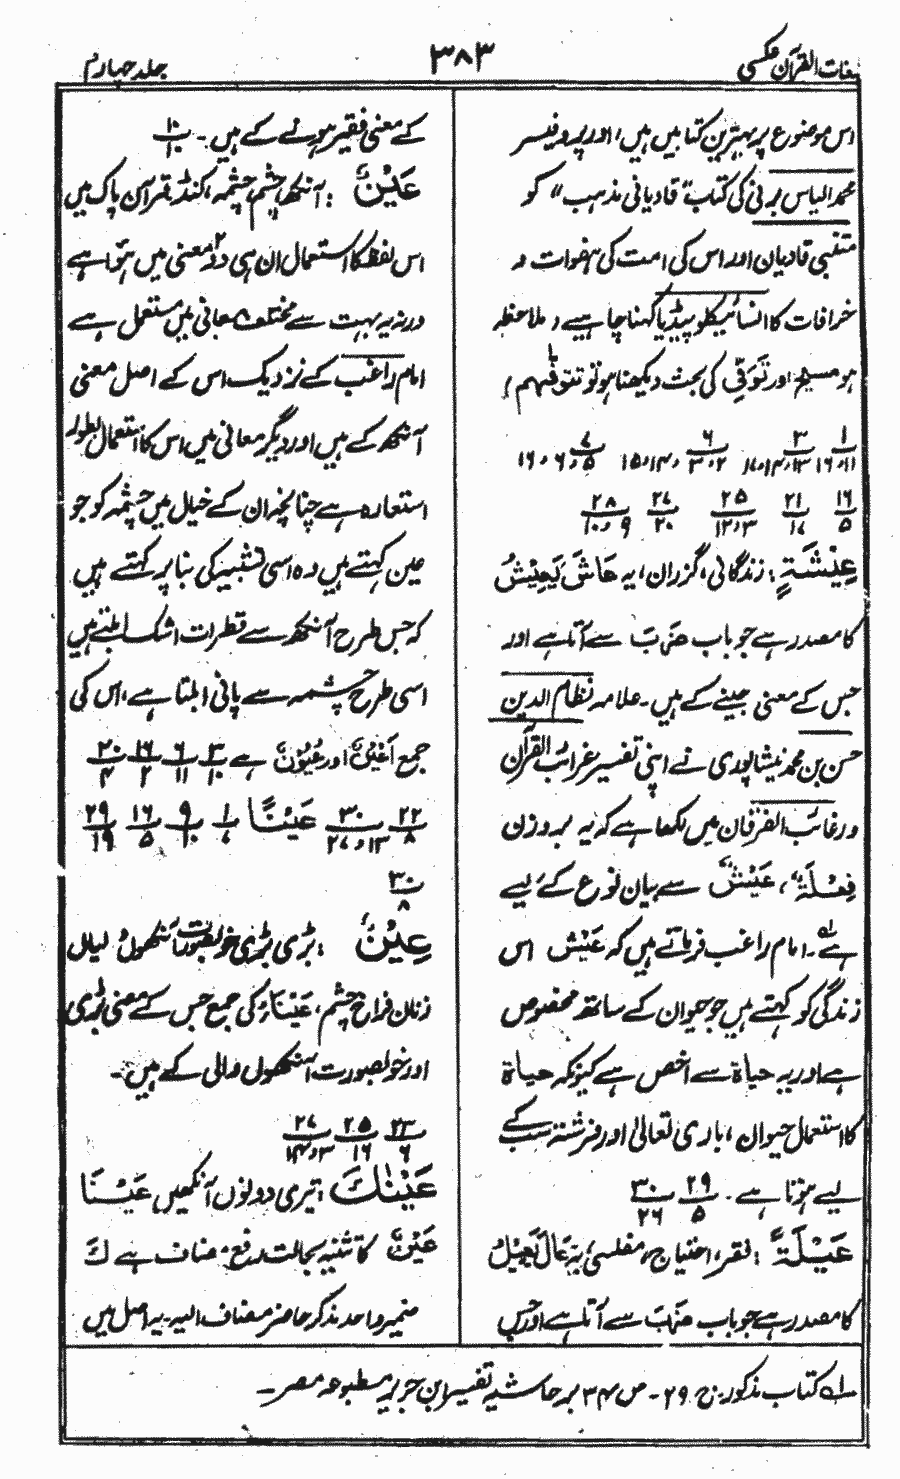 لغات القرآن عکسی
۳۸۳
جلد چہارم
اس موضوع پر بہترین کتابیں ہیں، اور پروفیسر
محمد الیاس برنی کی کتاب "قادیانی مذہب" کو
متنبی قادیان اور اس کی امت کی ہفوات و
خرافات کا انسائیکلو پیڈیا کہنا چاہیے، ملاحظہ
ہو مسیح اور توفی کی بحث دیکھنا ہو تو
۱ ۳ ۶ ۷
۱۱، ۱۶ ۱۳، ۱۴، ۱۷ ۲، ۳، ۱۴، ۱۵ ۵، ۶، ۱۶
۱۶ ۲۱ ۲۵ ۲۷ ۲۸
۵ ۱۷ ۳، ۱۲ ۲۰ ۹، ۱۰
عِيْشَةٍ : زندگانی، گزران، یہ عَاشَ يَعِيْشُ
کا مصدر ہے جو باب ضَرَبَ سے آتا ہے اور
جس کے معنی جینے کے ہیں۔ علامہ نظام الدین
حسن بن محمد نیشاپوری نے اپنی تفسیر غرائب القرآن
و رغائب الفرقان میں لکھا ہے کہ یہ بروزن
فِعْلَةٌ، عَيْشٌ سے بیان نوع کے لیے
ہے لہ۔ امام راغب فرماتے ہیں کہ عَيْش اس
زندگی کو کہتے ہیں جو حیوان کے ساتھ مخصوص
ہے اور یہ حیاۃ سے اخص ہے کیونکہ حیاۃ
کا استعمال حیوان، باری تعالیٰ اور فرشتہ سب کے
لیے ہوتا ہے۔ ۲۹ ۳۰
۵ ۲۶
عَيْلَةً : فقر، احتیاج، مفلسی، یہ عَالَ يَعِيْلُ
کا مصدر ہے جو باب ضَرَبَ سے آتا ہے اور جس
کے معنی فقیر ہونے کے ہیں۔ ۱۰
۱۰
عَيْنٌ : آنکھ، چشم، چشمہ، کنڈ، قرآن پاک میں
اس لفظ کا استعمال ان ہی دو۲ معنی میں ہوا ہے
ورنہ یہ بہت سے مختلف معانی میں مستعمل ہے
امام راغب کے نزدیک اس کے اصل معنی
آنکھ کے ہیں اور دیگر معانی میں اس کا استعمال بطور
استعارہ ہے چنانچہ ان کے خیال میں چشمہ کو جو
عین کہتے ہیں وہ اسی تشبیہ کی بنا پر کہتے ہیں
کہ جس طرح آنکھ سے قطرات اشک ابلتے ہیں
اسی طرح چشمہ سے پانی ابلتا ہے، اس کی
جمع اَعْيُنٌ اور عُيُوْنٌ ہے ۳ ۶ ۱۶ ۲۰
۱۰ ۱۱ ۲ ۴
۲۲ ۳۰ عَيْنًا ۱ ۹ ۱۶ ۲۹
۸ ۱۳، ۲۷ ۷ ۱۰ ۵ ۱۹
۳۰
۸
عِيْنٌ : بڑی بڑی خوبصورت آنکھوں والیاں
زنان فراخ چشم، عَيْنَاءُ کی جمع جس کے معنی بڑی
اور خوبصورت آنکھوں والی کے ہیں۔
۲۳ ۲۵ ۲۷
۶ ۱۶ ۳، ۱۴
عَيْنٰكَ : تیری دونوں آنکھیں عَيْنَا
عَيْنٌ کا تثنیہ بحالت رفع مضاف ہے كَ
ضمیر واحد مذکر حاضر مضاف الیہ یہ اصل میں
لہ کتاب مذکور۔ ج ۲۹ - ص ۳۴ بر حاشیہ تفسیر ابن جریر مطبوعہ مصر۔